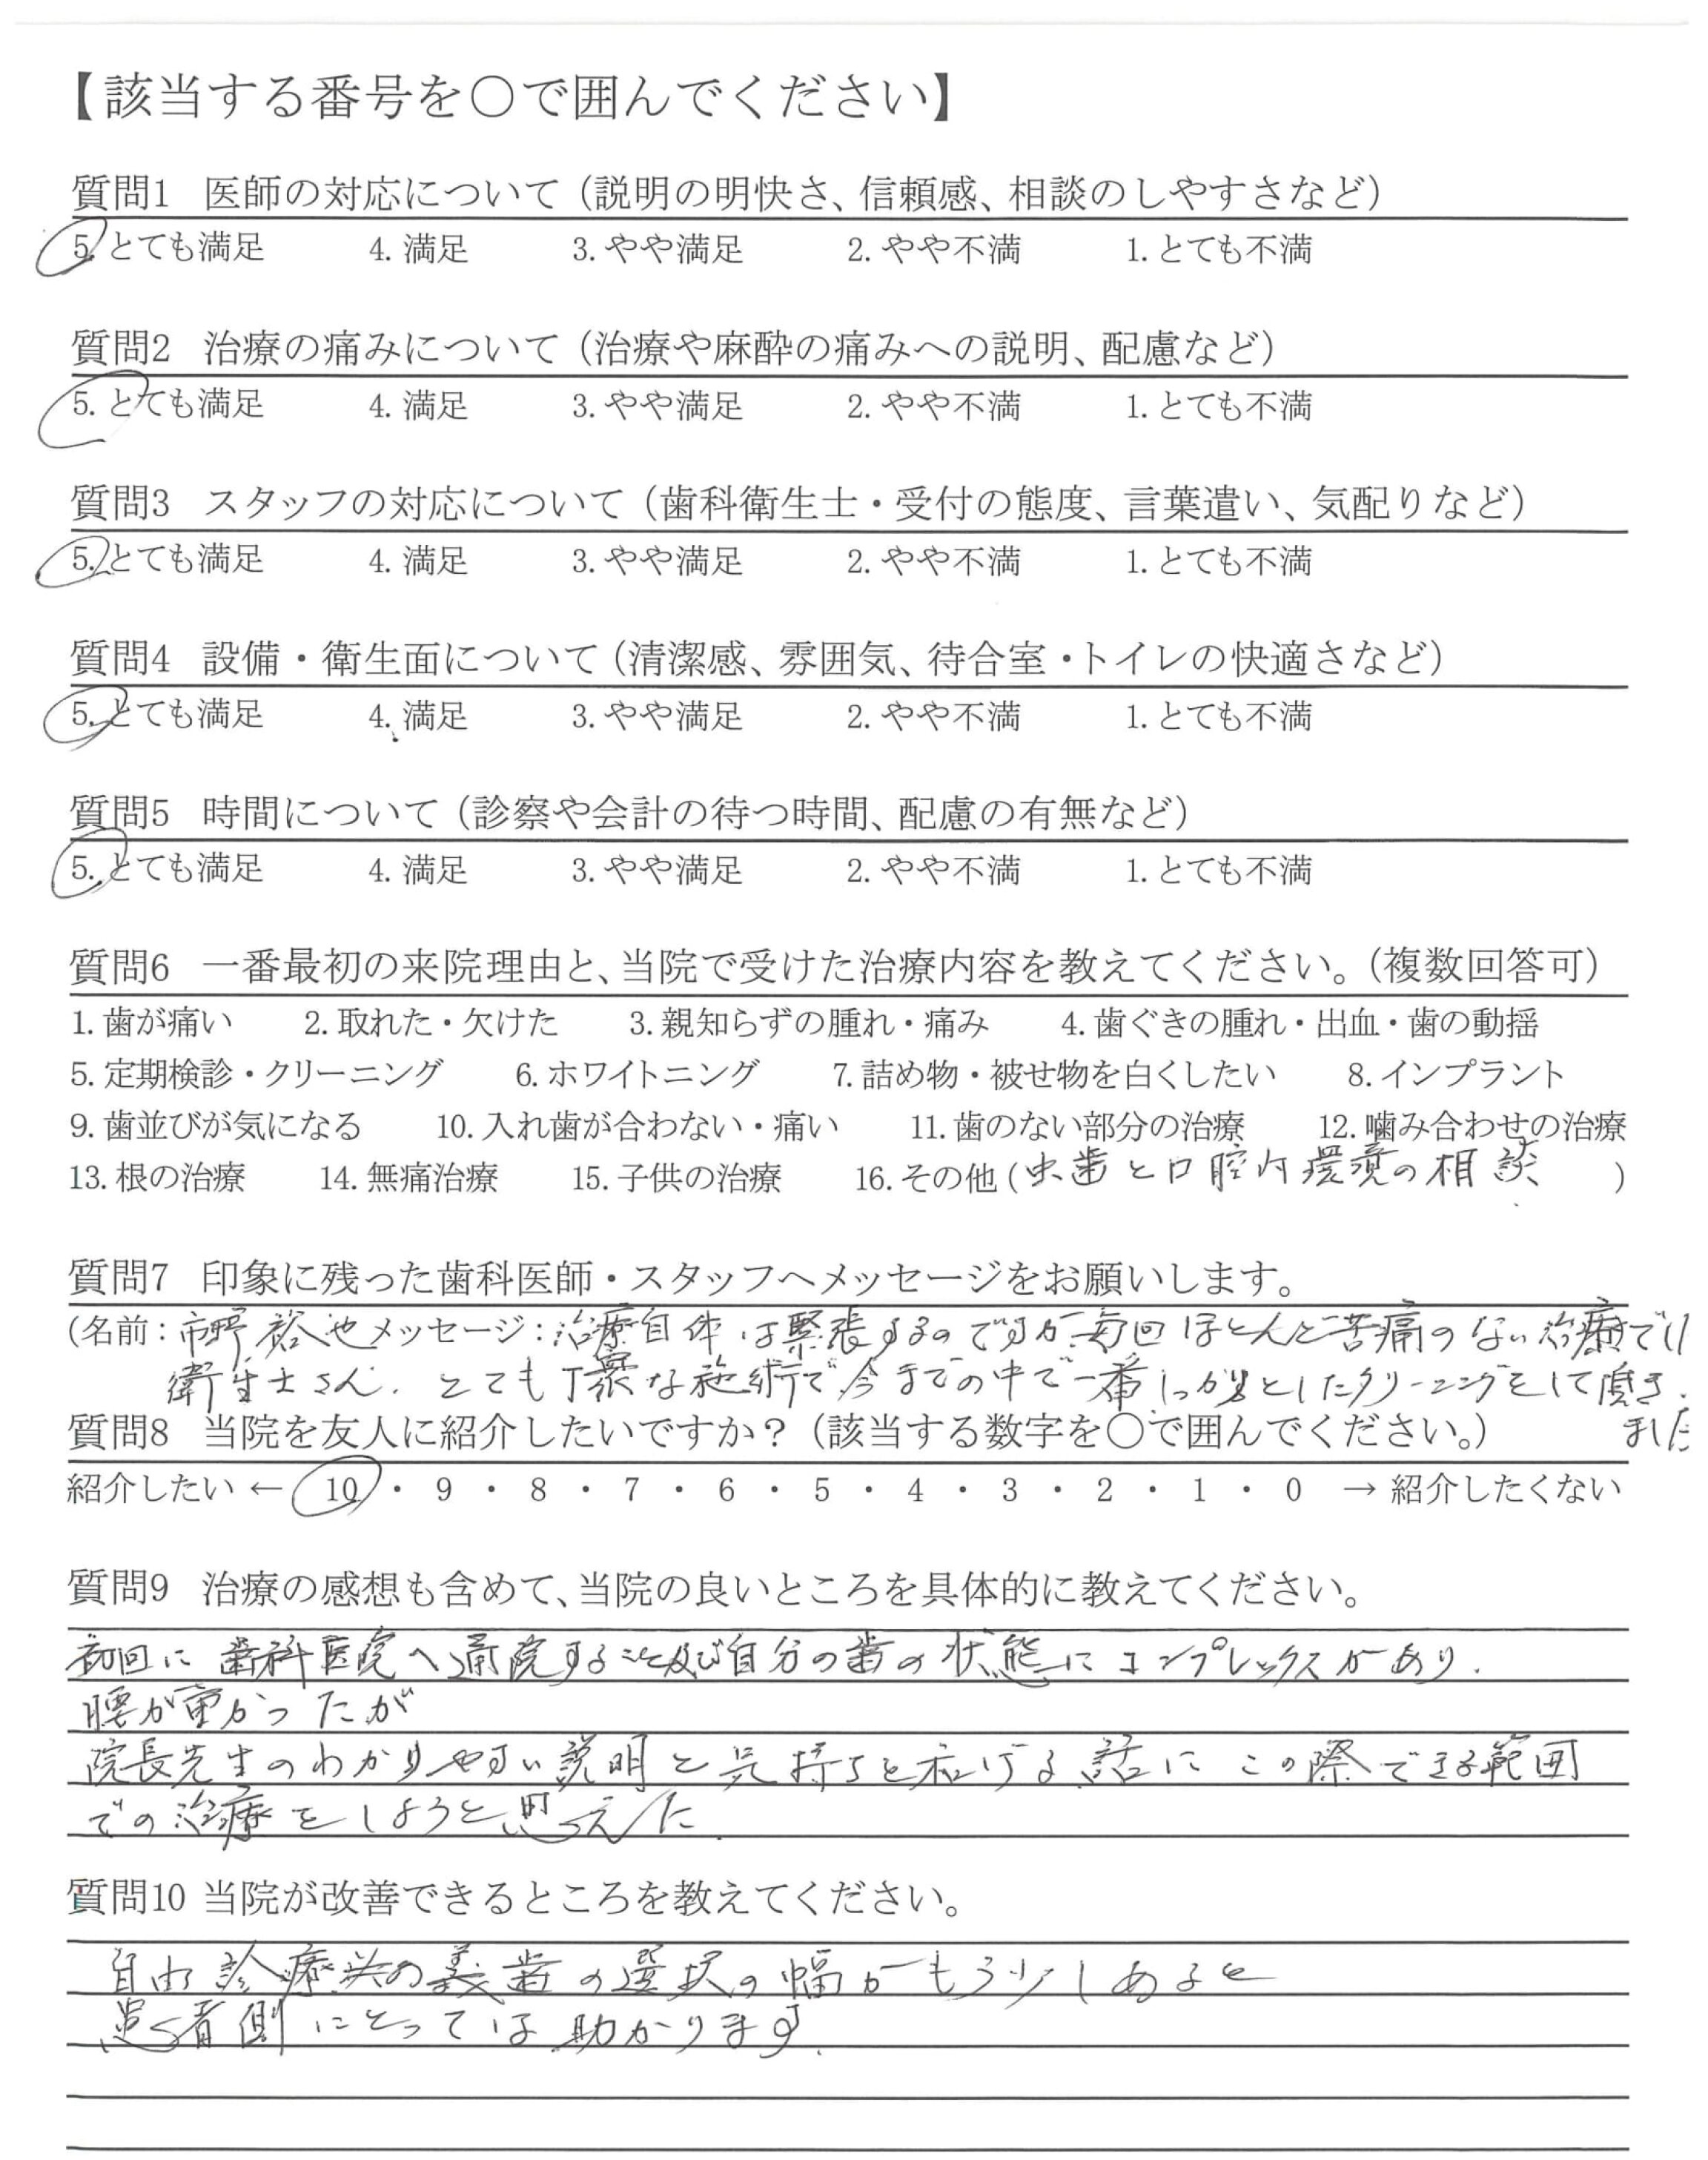 【該当する番号を〇で囲んでください】
質問1 医師の対応について（説明の明快さ、信頼感、相談のしやすさなど）
5. とても満足 4. 満足 3. やや満足 2. やや不満 1. とても不満
質問2 治療の痛みについて（治療や麻酔の痛みへの説明、配慮など）
5. とても満足 4. 満足 3. やや満足 2. やや不満 1. とても不満
質問3 スタッフの対応について（歯科衛生士・受付の態度、言葉遣い、気配りなど）
5. とても満足 4. 満足 3. やや満足 2. やや不満 1. とても不満
質問4 設備・衛生面について（清潔感、雰囲気、待合室・トイレの快適さなど）
5. とても満足 4. 満足 3. やや満足 2. やや不満 1. とても不満
質問5 時間について（診察や会計の待つ時間、配慮の有無など）
5. とても満足 4. 満足 3. やや満足 2. やや不満 1. とても不満
質問6 一番最初の来院理由と、当院で受けた治療内容を教えてください。（複数回答可）
1. 歯が痛い 2. 取れた・欠けた 3. 親知らずの腫れ・痛み 4. 歯ぐきの腫れ・出血・歯の動揺
5. 定期検診・クリーニング 6. ホワイトニング 7. 詰め物・被せ物を白くしたい 8. インプラント
9. 歯並びが気になる 10. 入れ歯が合わない・痛い 11. 歯のない部分の治療 12. 噛み合わせの治療
13. 根の治療 14. 無痛治療 15. 子供の治療 16. その他（虫歯と口腔内環境の相談）
質問7 印象に残った歯科医師・スタッフへメッセージをお願いします。
（名前：市野 裕也 メッセージ：治療自体は緊張するのですが、毎回ほとんど苦痛のない治療で
衛生士さん、とても丁寧な施術で今までの中で一番しっかりとしたクリーニングをして頂き
ました
質問8 当院を友人に紹介したいですか？（該当する数字を〇で囲んでください。）
紹介したい ← 10 ・ 9 ・ 8 ・ 7 ・ 6 ・ 5 ・ 4 ・ 3 ・ 2 ・ 1 ・ 0 → 紹介したくない
質問9 治療の感想も含めて、当院の良いところを具体的に教えてください。
初回に歯科医院へ通院すること及び自分の歯の状態にコンプレックスがあり、
腰が重かったが
院長先生のわかりやすい説明と気持ちを和げる話にこの際できる範囲
での治療をしようと思えた.
質問10 当院が改善できるところを教えてください。
自由診療の義歯の選択の幅がもう少しあると
患者側にとっては助かります.